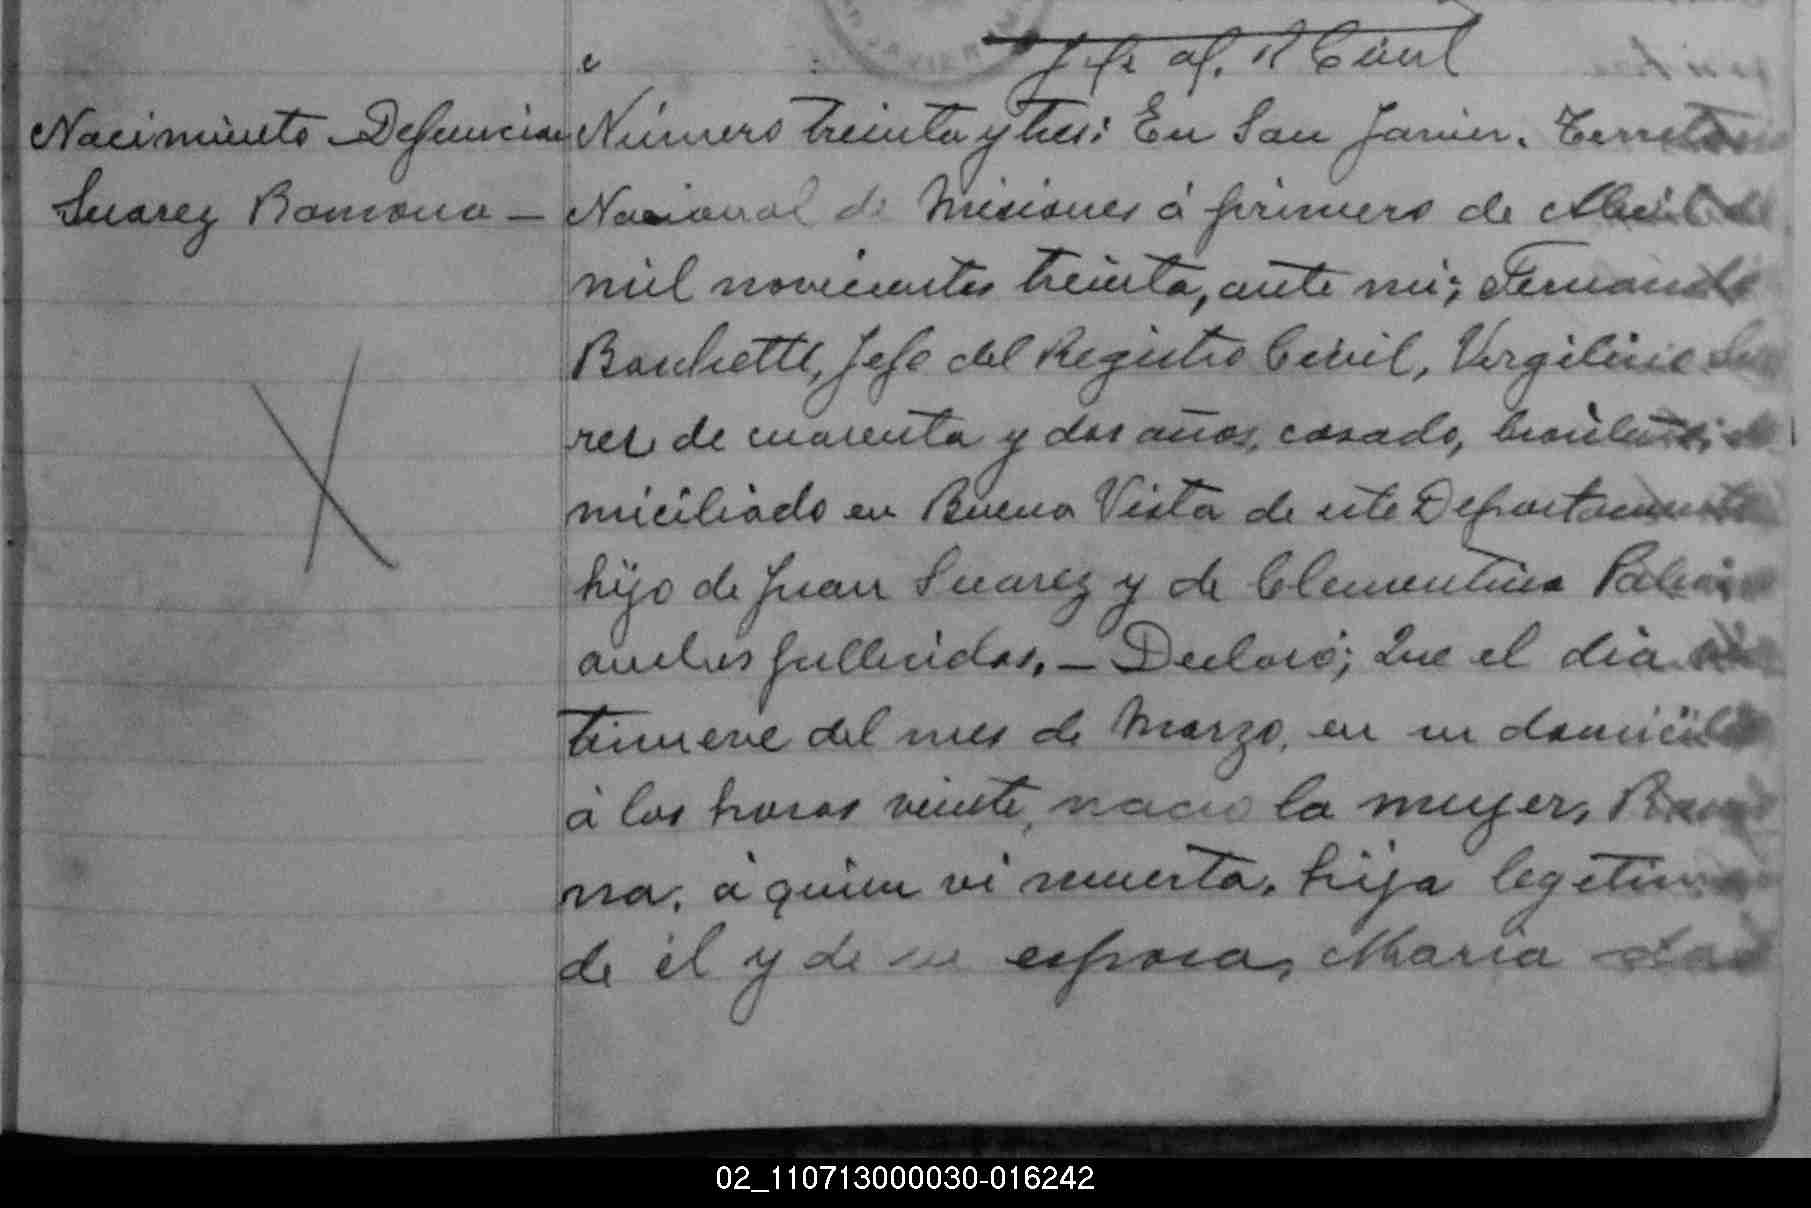 Jefe del R. Civil
Nacimiento Defuncion
Suarez Ramona —
Número treinta y tres: En San Javier, Territorio
Nacional de Misiones á primero de Abril de
mil novecientos treinta, ante mi; Fernando
Jefe del Registro Civil, Virgilino Sua
rez de cuarenta y dos años, casado, brasileño; do
miciliado en Buena Vista de este Departamento
hijo de Juan Suarez y de Clementina
ambos fallecidos. — Declaró; Que el dia vein
tinueve del mes de Marzo, en su domicilio
á las horas veinte, nacio la mujer, Ramo
na. á quien vi muerta. hija legitima
de él y de su esposa, Maria
02_110713000030-016242